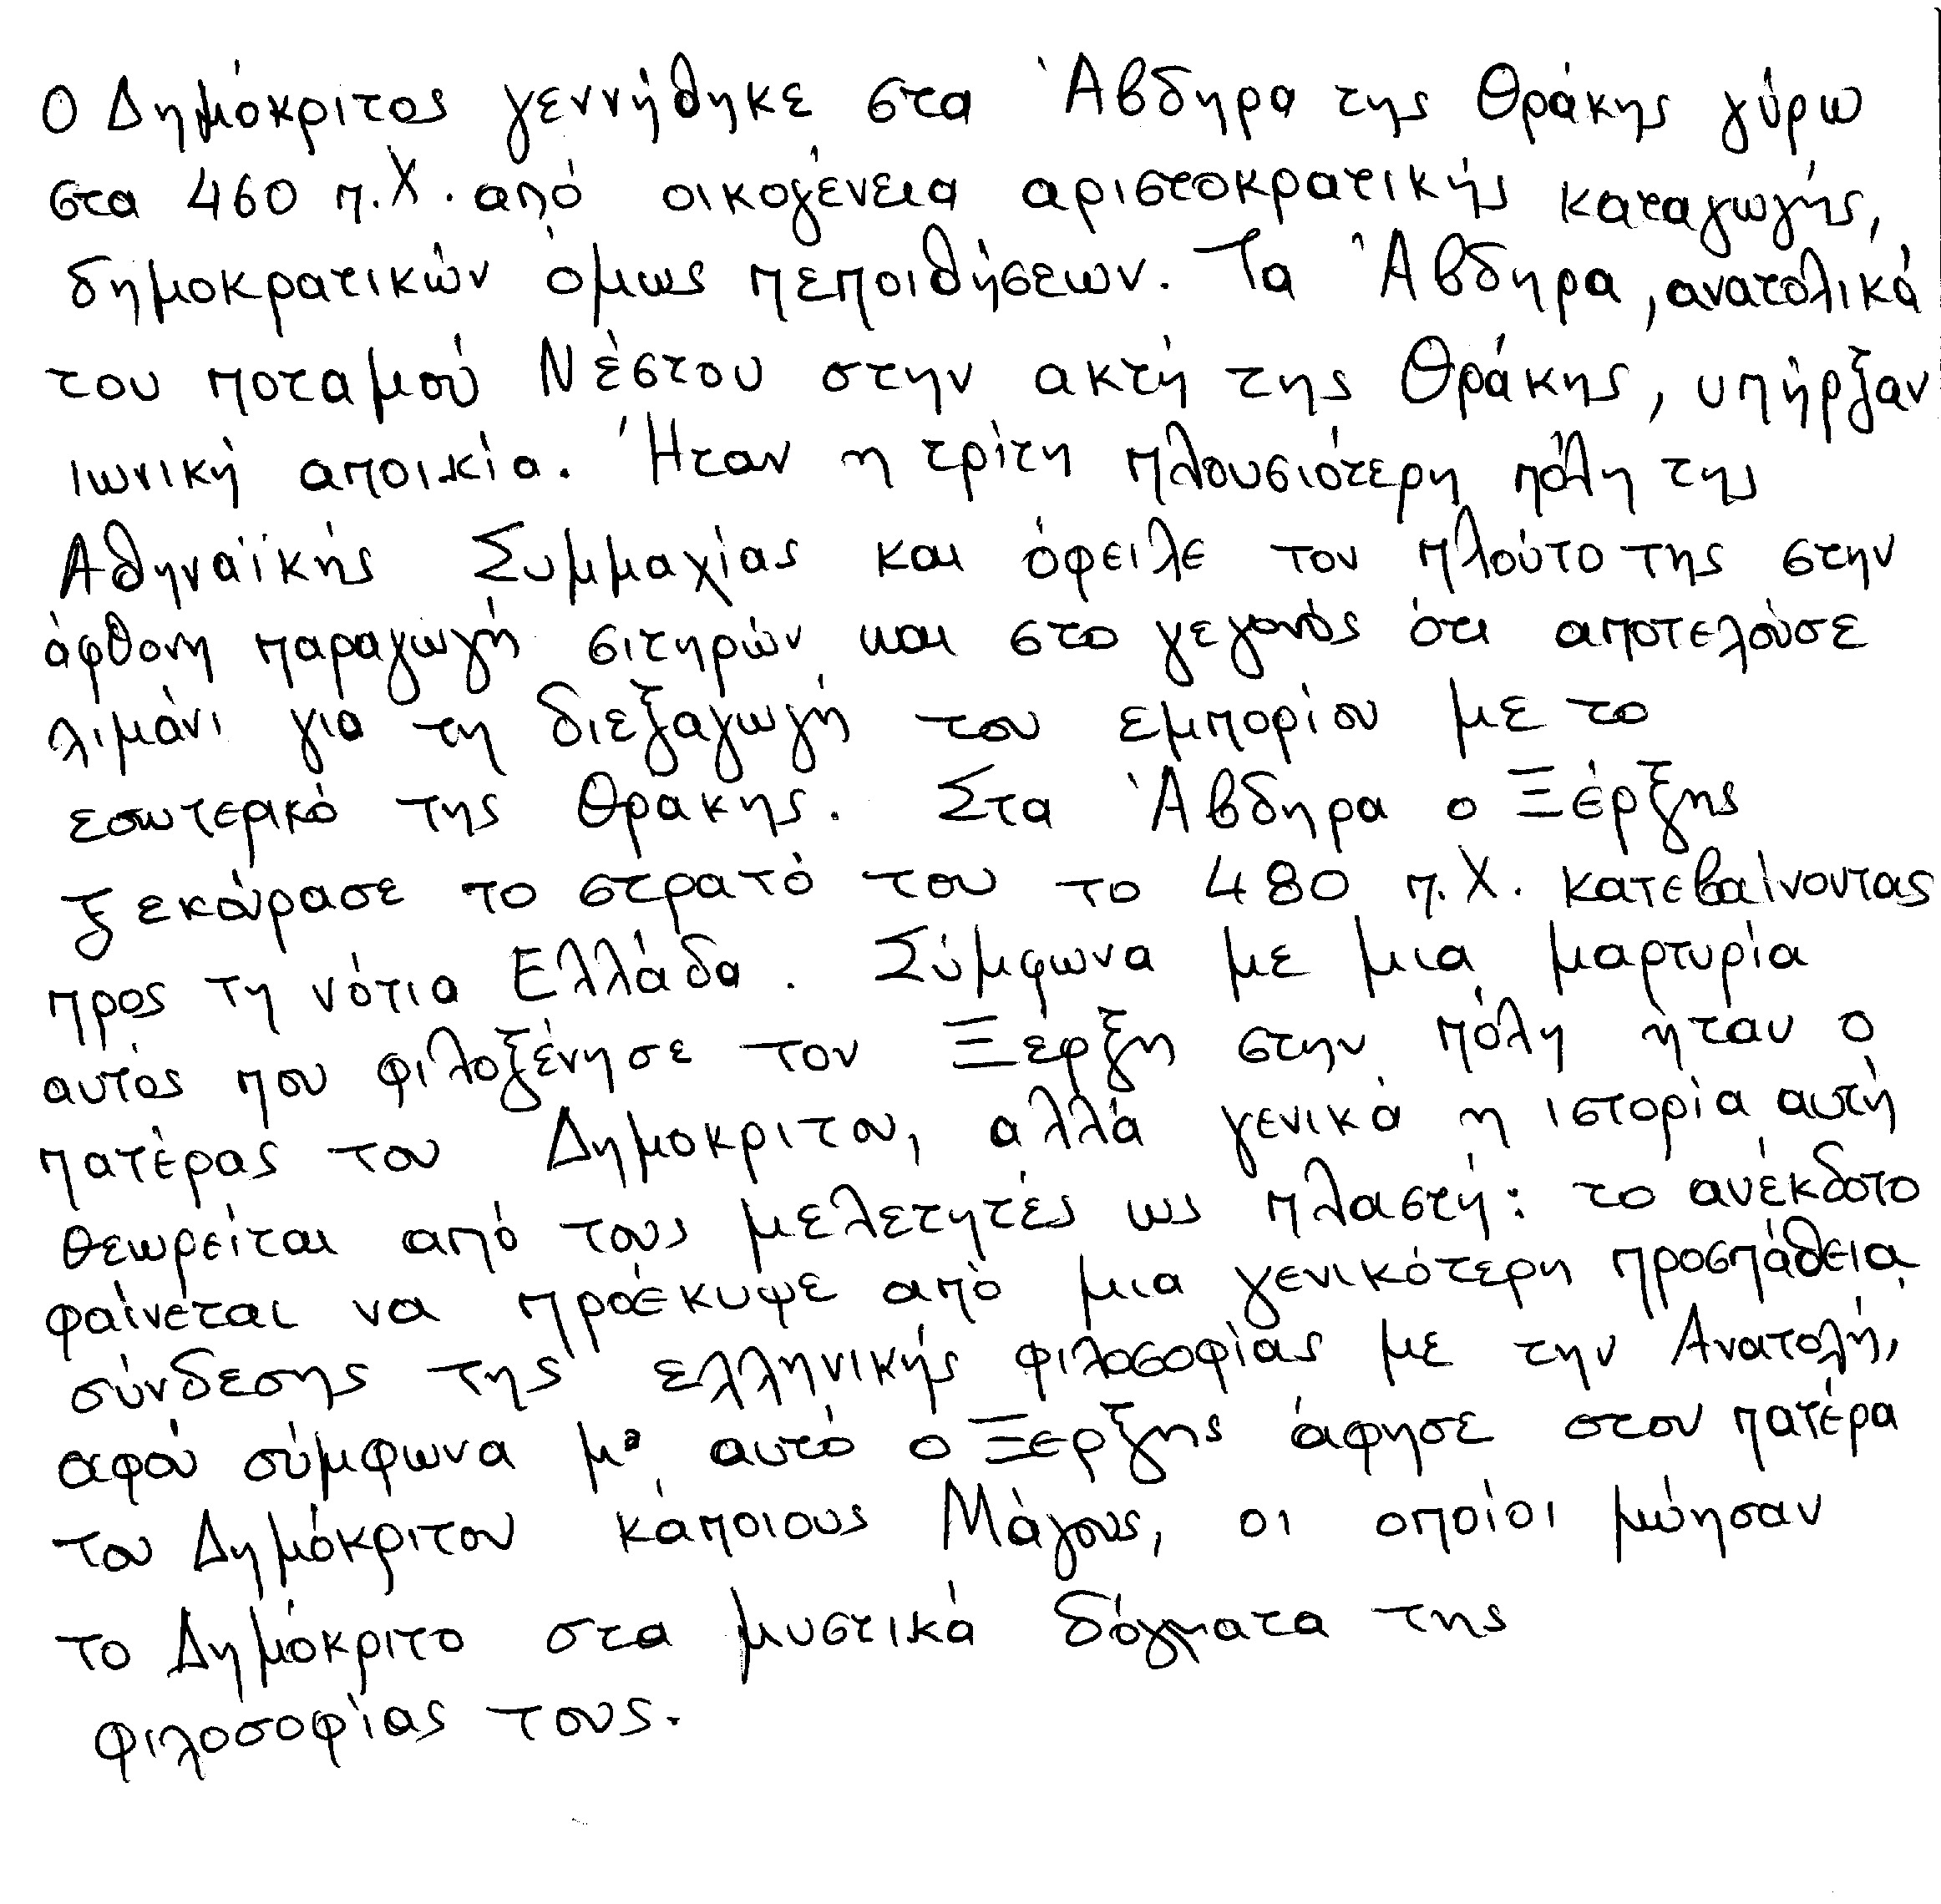 Ο Δημόκριτος γεννήθηκε στα Άβδηρα της Θράκης γύρω
στα 460 π.Χ. από οικογένεια αριστοκρατικής καταγωγής,
δημοκρατικών όμως πεποιθήσεων. Τα Άβδηρα, ανατολικά
του ποταμού Νέστου στην ακτή της Θράκης, υπήρξαν
ιωνική αποικία. Ήταν η τρίτη πλουσιότερη πόλη της
Αθηναϊκής Συμμαχίας και όφειλε τον πλούτο της στην
άφθονη παραγωγή σιτηρών και στο γεγονός ότι αποτελούσε
λιμάνι για τη διεξαγωγή του εμπορίου με το
εσωτερικό της Θρακης. Στα Άβδηρα ο Ξέρξης
ξεκούρασε το στρατό του το 480 π.Χ. κατεβαίνοντας
προς τη νότια Ελλάδα. Σύμφωνα με μια μαρτυρία
αυτός που φιλοξένησε τον Ξέρξη στην πόλη ήταν ο
πατέρας του Δημοκριτου, αλλά γενικά η ιστορία αυτή
θεωρείται από τους μελετητές ως πλαστή: το ανέκδοτο
φαίνεται να προέκυψε από μια γενικότερη προσπάθεια
σύνδεσης της ελληνικής φιλοσοφίας με την Ανατολή,
αφού σύμφωνα με αυτό ο Ξερξης άφησε στον πατέρα
του Δημόκριτου κάποιους Μάγους, οι οποίοι μύησαν
το Δημόκριτο στα μυστικά δόγματα της
φιλοσοφίας τους.